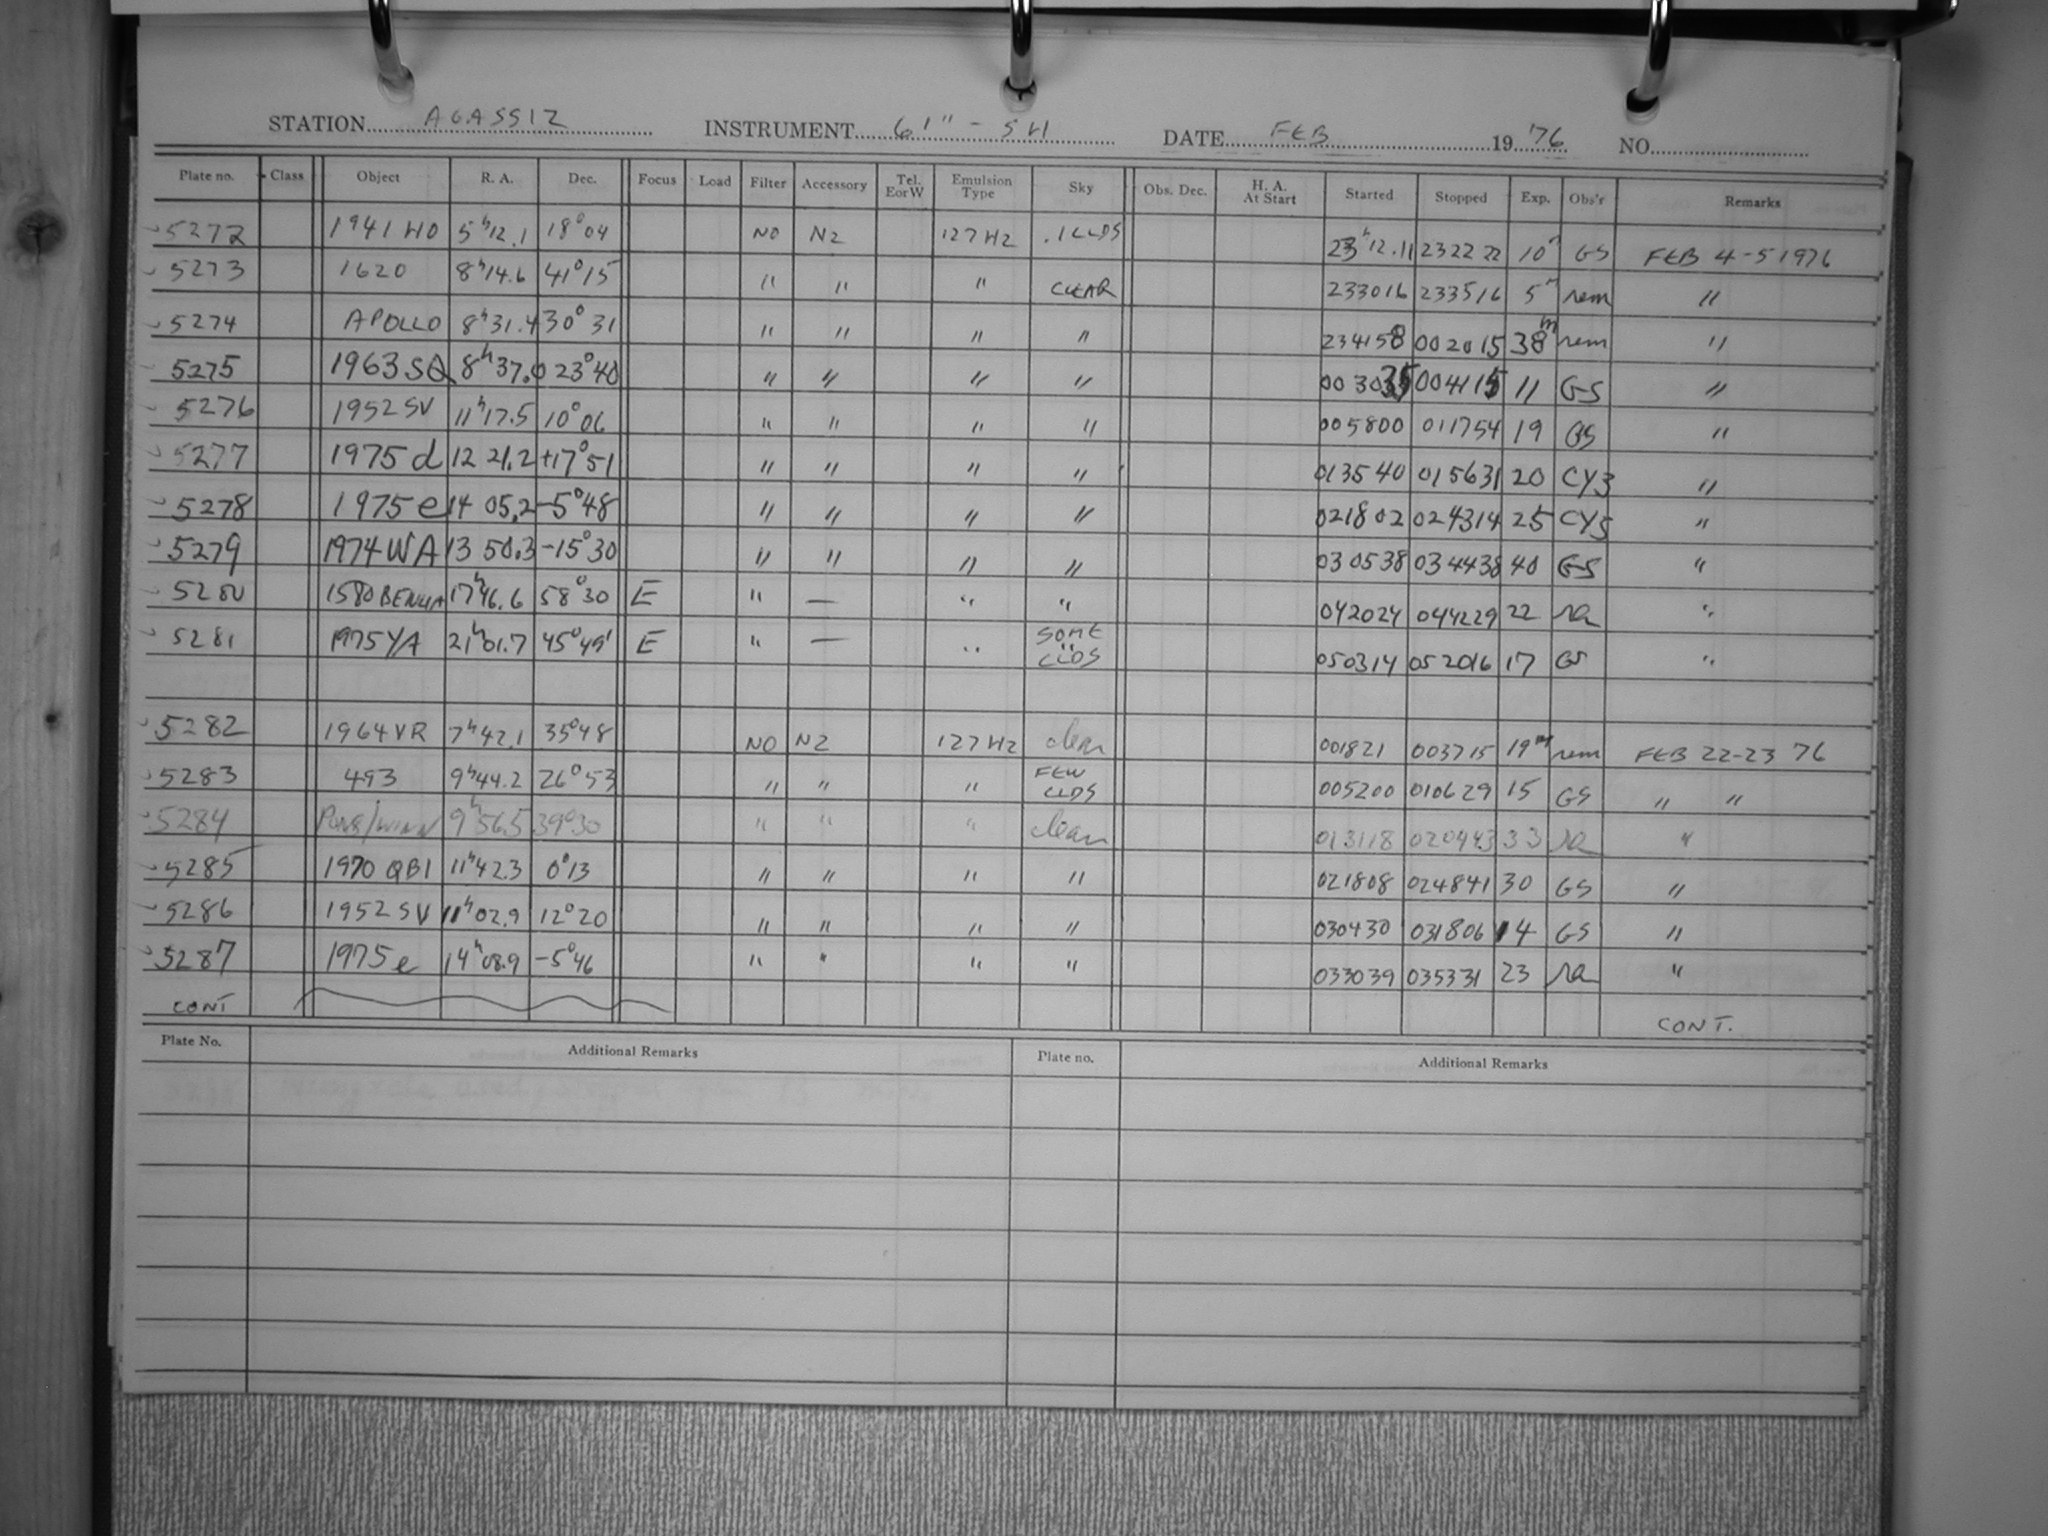 STATION AGASSIZ INSTRUMENT 61" - SH DATE FEB 19 '76 NO.
Plate no. Class Object R. A. Dec. Focus Load Filter Accessory Tel. E or W Emulsion Type Sky Obs. Dec. H. A. At Start Started Stopped Exp. Obs'r Remarks
5272 1941 HO 5h12.1 18°04 NO N2 127H2 .1 CLDS 23h12.11 232222 10m GS FEB 4-5 1976
5273 1620 8h14.6 41°15 " " " CLEAR 233016 233516 5m rem "
5274 APOLLO 8h31.4 30°31 " " " " 234158 002015 38m rem "
5275 1963 SQ 8h37.0 23°40 " " " " 003035 004115 11 GS "
5276 1952 SV 11h17.5 10°06 " " " " 005800 011754 19 GS "
5277 1975 d 12 21.2 +17°51 " " " " 013540 015631 20 CYS "
5278 1975 e 14 05.2 -5°48 " " " " 021802 024314 25 CYS "
5279 1974 WA 13 50.3 -15°30 " " " " 030538 034438 40 GS "
5280 1580 BETULIA 17h46.6 58°30 E " — " " 042024 044229 22 "
5281 1975 YA 21h01.7 45°49' E " — " SOME CLDS 050314 052016 17 GS "
5282 1964 VR 7h42.1 35°48 NO N2 127H2 clear 001821 003715 19m rem FEB 22-23 76
5283 493 9h44.2 26°53 " " " FEW CLDS 005200 010629 15 GS " "
5284 Pons/WINN 9h56.5 39°30 " " " clear 013118 020443 33 "
5285 1970 QB1 11h42.3 0°13 " " " " 021808 024841 30 GS "
5286 1952 SV 11h02.9 12°20 " " " " 030430 031806 14 GS "
5287 1975 e 14h08.9 -5°46 " " " " 033039 035331 23 "
CONT CONT.
Plate No. Additional Remarks Plate no. Additional Remarks